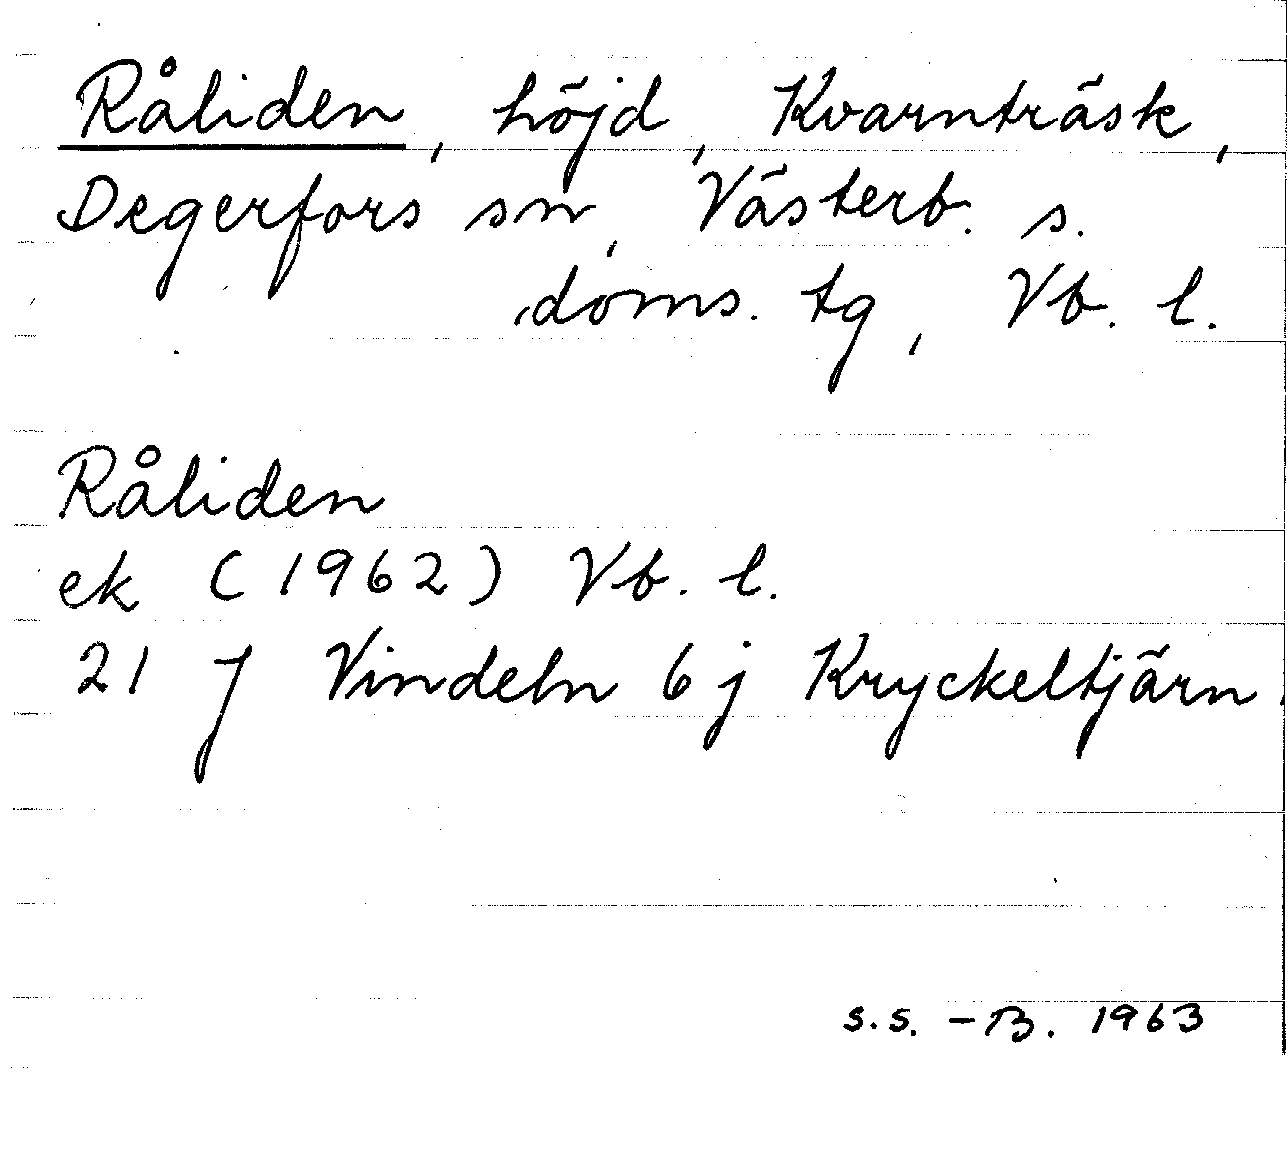 Råliden, höjd, Kvarnträsk,
Degerfors sn, Västerb. s.
doms. tg, Vb. l.
Råliden
ek (1962) Vb. l.
21 J Vindeln 6 j Kryckeltjärn.
s.s. - B. 1963